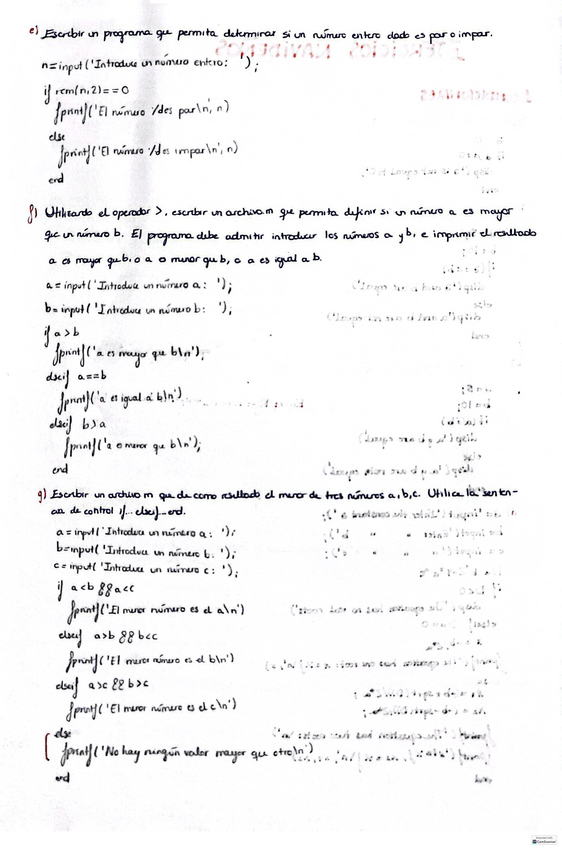 e) Escribir un programa que permita determinar si un número entero dado es par o impar.
n=input('Introduce un número entero: ');
if rem(n,2)==0
fprintf('El número %des par\n', n)
else
fprintf('El número %des impar\n', n)
end
f) Utilizando el operador >, escribir un archivo.m que permita definir si un número a es mayor
que un número b. El programa debe admitir introducir los números a y b, e imprimir el resultado
a es mayor que b, o a o menor que b, o a es igual a b.
a=input('Introduce un número a: ');
b=input('Introduce un número b: ');
if a>b
fprintf('a es mayor que b\n');
elseif a==b
fprintf('a es igual a b\n')
elseif b>a
fprintf('a o menor que b\n');
end
g) Escribir un archivo m que de como resultado el menor de tres números a,b,c. Utilice la senten-
cia de control if... elseif...end.
a=input('Introduce un número a: ');
b=input('Introduce un número b: ');
c=input('Introduce un número c: ');
if a<b && a<c
fprintf('El menor número es el a\n')
elseif a>b && b<c
fprintf('El menor número es el b\n')
elseif a>c && b>c
fprintf('El menor número es el c\n')
else
fprintf('No hay ningún valor mayor que otro\n')
end
CamScanner